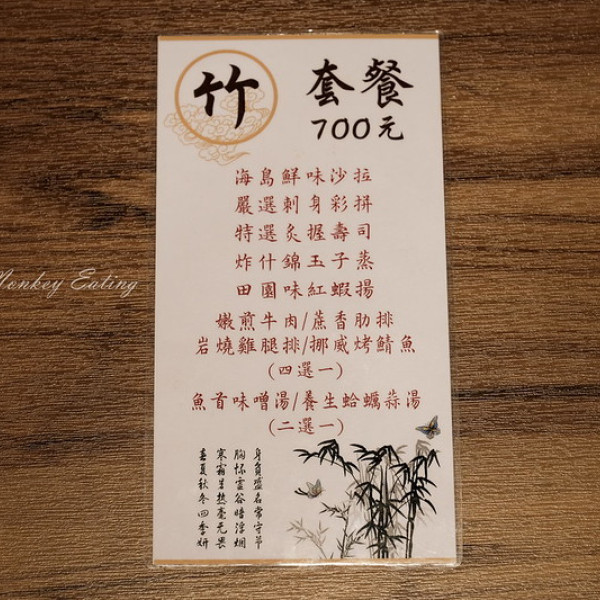 竹
套餐
700元
海島鮮味沙拉
嚴選刺身彩拼
特選炙握壽司
炸什錦玉子蒸
田園味紅蝦揚
嫩煎牛肉/蔗香肋排
岩燒雞腿排/挪威烤鯖魚
(四選一)
魚首味噌湯/養生蛤蠣蒜湯
(二選一)
身負盛名常守節
胸懷虛谷暗浮烟
寒霜苦熬毫无畏
春夏秋冬四季妍
Monkey Eating